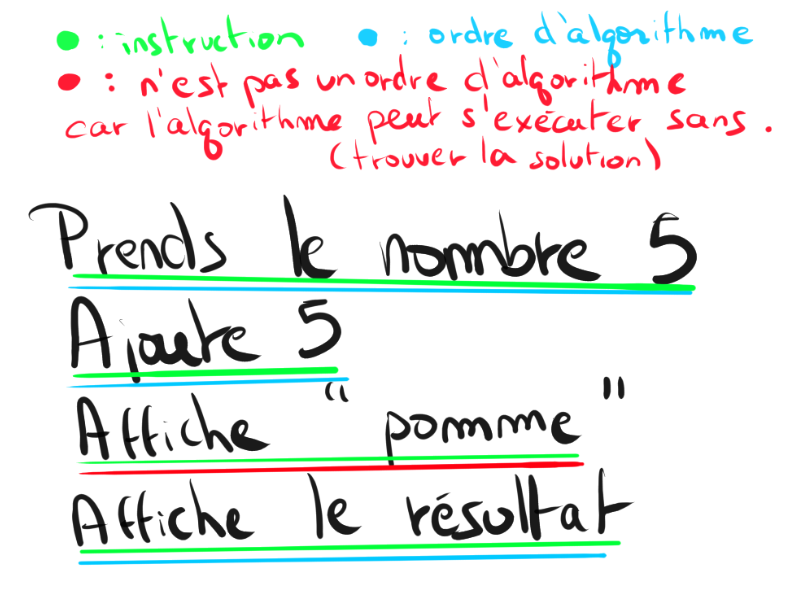 : instruction : ordre d'algorithme
: n'est pas un ordre d'algorithme
car l'algorithme peut s'exécuter sans.
(trouver la solution)
Prends le nombre 5
Ajoute 5
Affiche "pomme"
Affiche le résultat